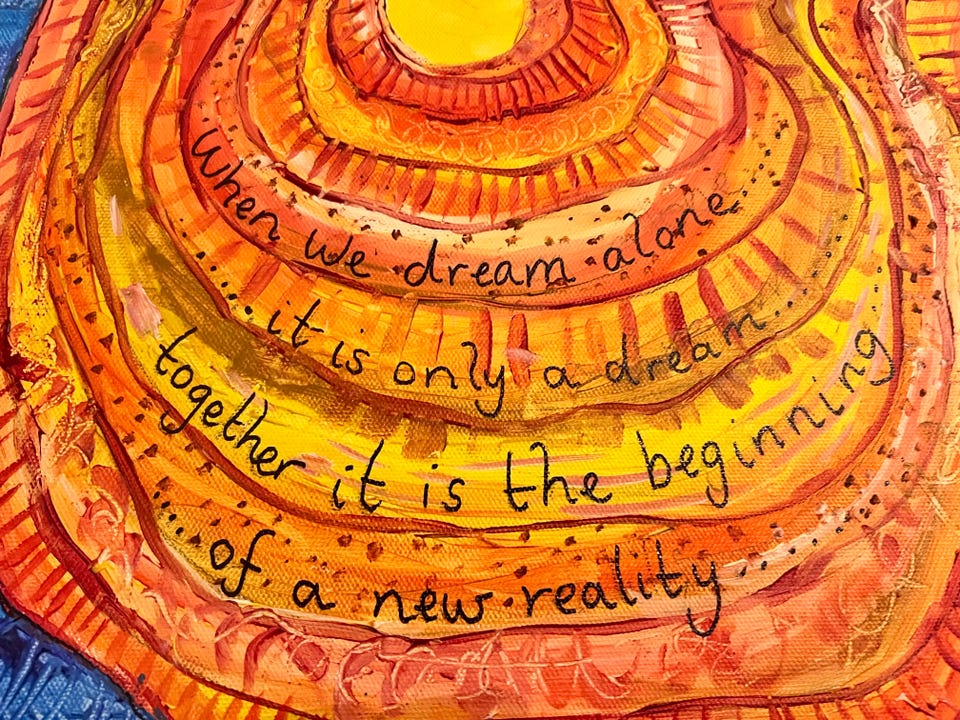 When we dream alone...
...it is only a dream...
together it is the beginning
...of a new reality...